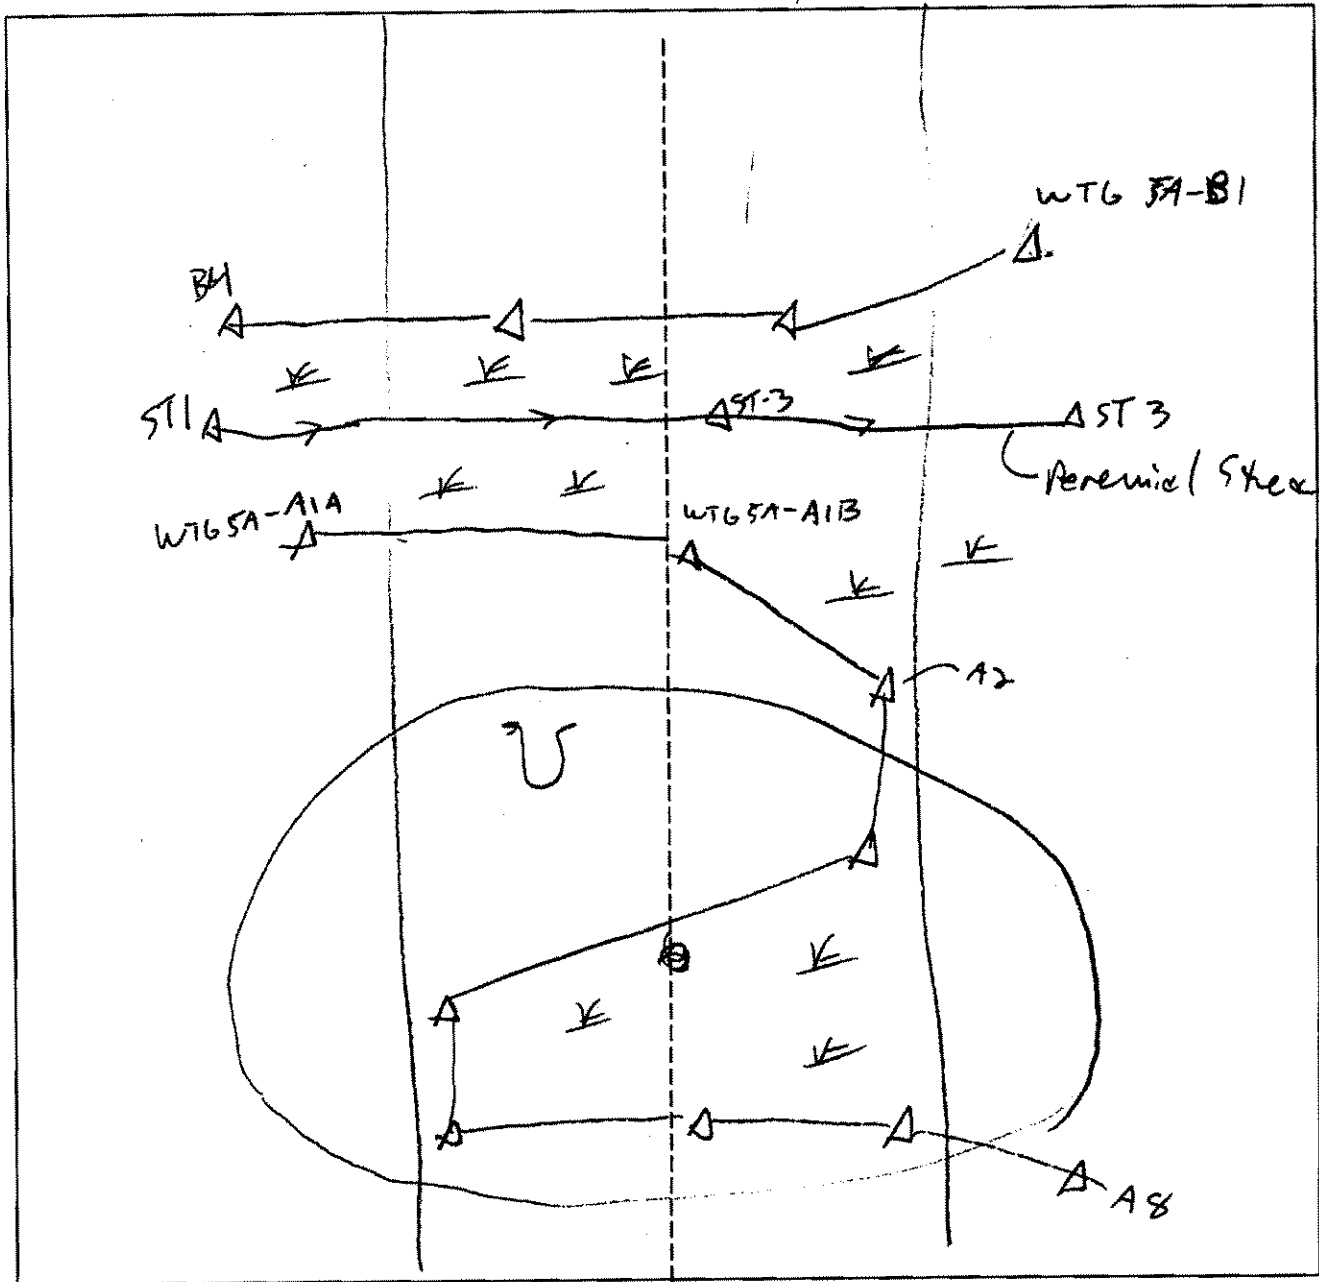 WTG 5A-B1
B4
ST1
ST-3
ST 3
Perennial Strea
WTG5A-A1A
WTG5A-A1B
A2
U
A8